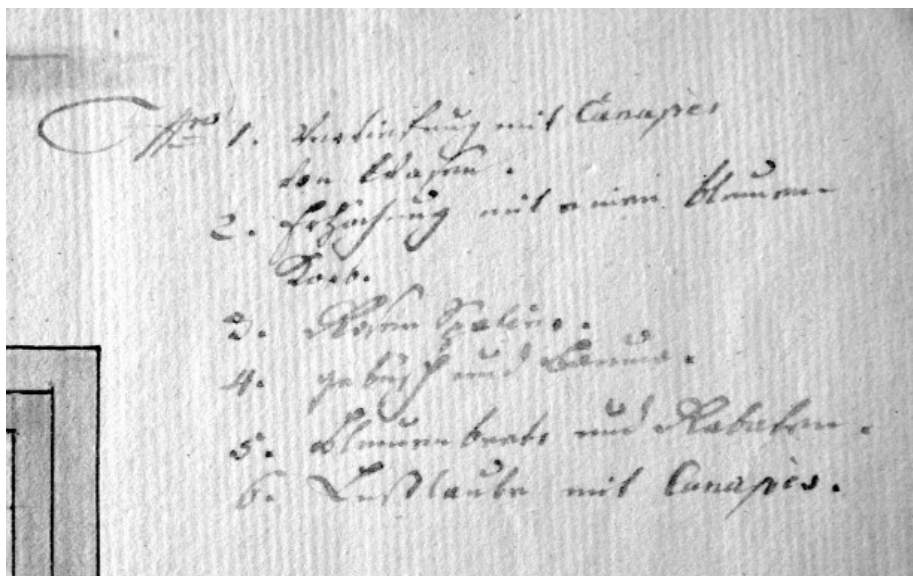 Nro 1. Vertiefung mit Canapées
von Wasen.
2. Erhöhung mit einen blumen
Korb.
3. Rosen Spalier.
4. gebüsch und Bäume.
5. Blumenbeete und Rabaten.
6. Lustlaube mit Canapées.